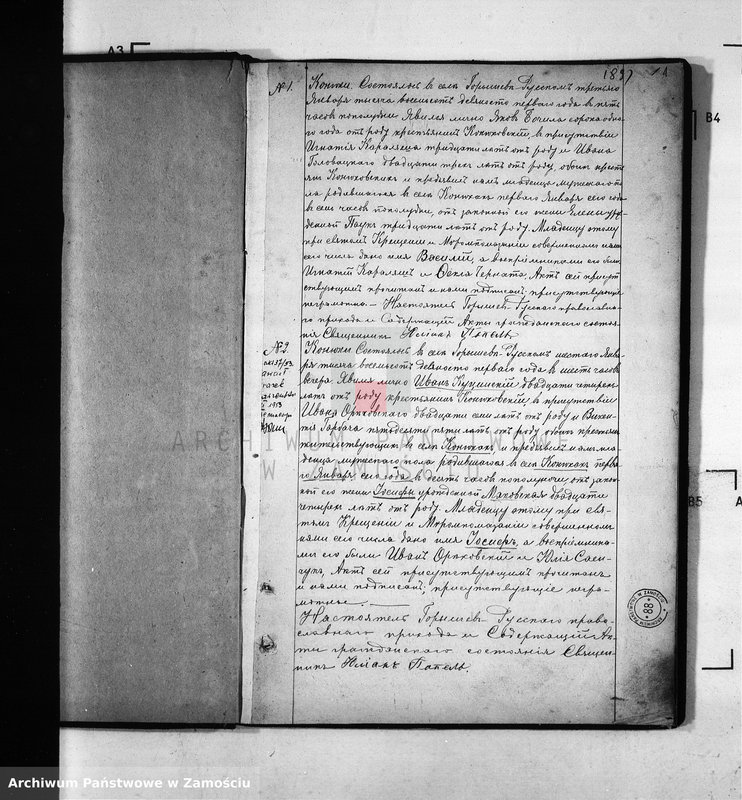 A3
B4
B5
1897
№ 1.
Конюхи. Состоялось в селе Горышев-Русском третьяго
Января тысяча восемьсот девяносто перваго года в пять
часов пополудни. Явился лично Яков Бочила сорока одно-
го года от роду крестьянин Конюховский, в присутствии
Игнатія Караляща тридцати лет от роду и Ивана
Головацкого двадцати трех лет от роду, обоих крест-
ян Конюховских и предъявил нам младенца мужескаго по-
ла родившагося в селе Конюхах перваго Января сего года
в семь часов пополудни, от законной его жены Елены уро-
жденной Паук тридцати лет от роду. Младенцу этому
при святом Крещении и Миропомазании совершенном нами
сего числа дано имя Василій, а восприемниками его были
Игнатій Каралящ и Фекла Черната. Акт сей присут-
ствующим прочитан и нами подписан, присутствующие
неграмотны. — Настоятель Горышев-Русского православна-
го прихода и Содержащий Акты гражданского состоя-
ния Священник Юліан Панель
№ 2.
Конюхи Состоялось в селе Горышев-Русском шестого Янва-
ря тысяча восемьсот девяносто перваго года в шесть часов
вечера. Явился лично Иван Кушинский двадцати четырех
лет от роду крестьянин Конюховский в присутствии
Ивана Ораховского двадцати семи лет от роду и Викен-
тія Гарбача пятьдесяти пяти лет от роду обоих крестьян
жительствующих в селе Конюхах и предъявил нам мла-
денца мужеского пола родившагося в селе Конюхах перва-
го Января сего года в десять часов пополуночи от закон-
ной его жены Іосифы урожденной Маховская двадцати
четырех лет от роду. Младенцу этому при свя-
том Крещении и Миропомазании совершенном
нами сего числа дано имя Іосиф, а восприемника-
ми его были Иван Ораховскій и Юлія Саен-
чук, Акт сей присутствующим прочитан
и нами подписан, присутствующие негра-
мотные. —
Настоятель Горышев Русского право-
славнаго прихода и Содержащій Ак-
ты гражданского состоянія Священ-
ник Юліан Панель.
ARCHIWUM PAŃSTWOWE
W ZAMOŚCIU
88
Archiwum Państwowe w Zamościu